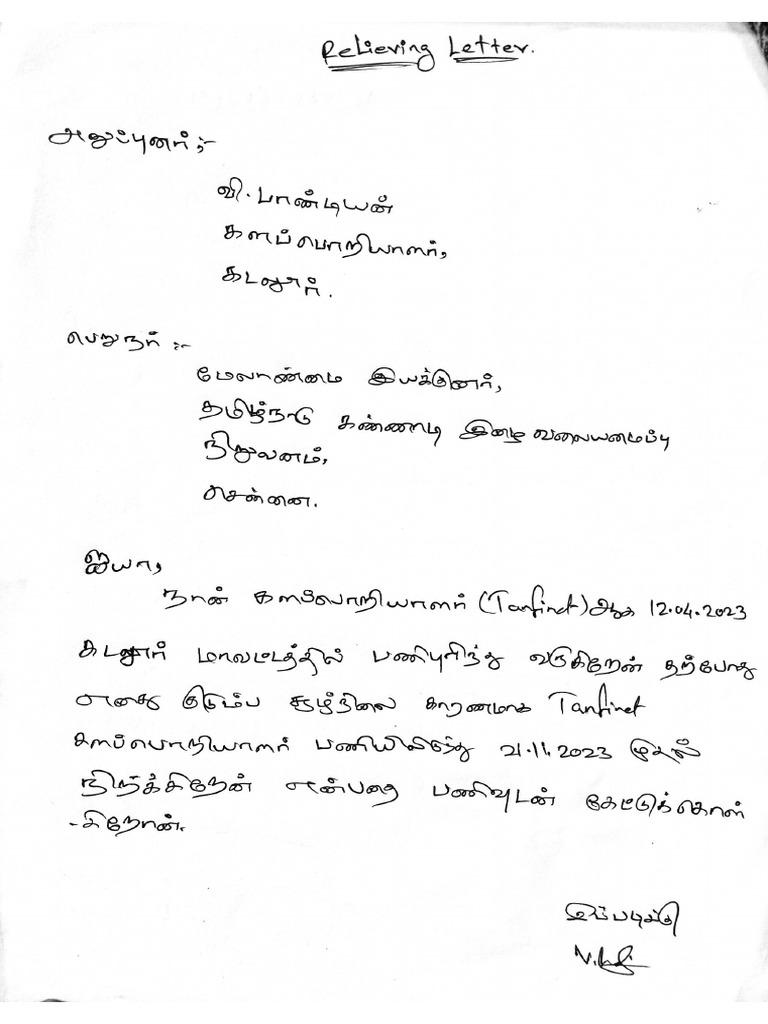 Relieving Letter.
அனுப்புனர் ;-
வி. பாண்டியன்
களப்பொறியாளர்,
கடலூர்.
பெறுநர் :-
மேலாண்மை இயக்குனர்,
தமிழ்நாடு கண்ணாடி இழை வலையமைப்பு
நிறுவனம்,
சென்னை.
ஐயா,
நான் களப்பொறியாளர் (Tanfinet) ஆக 12.04.2023
கடலூர் மாவட்டத்தில் பணிபுரிந்து வருகிறேன் தற்போது
எனது குடும்ப சூழ்நிலை காரணமாக Tanfinet
களப்பொறியாளர் பணியிலிருந்து 21.11.2023 முதல்
நிற்க்கிறேன் என்பதை பணிவுடன் கேட்டுக்கொள்
-கிறேன்.
இப்படிக்கு